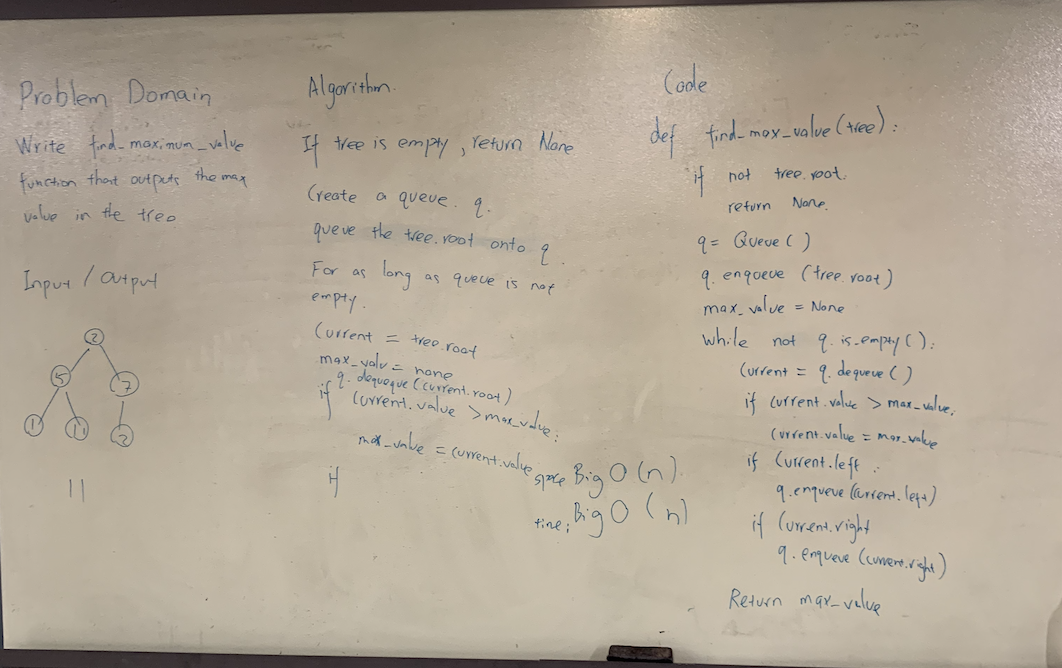 Problem Domain
Write find_maximum_value
function that outputs the max
value in the tree
Input / Output
2
5
7
1
11
2
11
Algorithm.
If tree is empty, return None
Create a queue. q.
queue the tree.root onto q.
For as long as queue is not
empty.
Current = tree.root
max_valu = none
q. dequeque (current.root)
if current.value > max_value:
max_value = current.value
if
space Big O (n).
time: Big O (n)
Code
def find_max_value (tree):
if not tree.root.
return None.
q= Queue ( )
q. enqueue (tree.root)
max_value = None
while not q. is_empty ( ):
Current = q. dequeue ( )
if current.value > max_value:
Current.value = max_value
if Current.left :
q.enqueue (current.left)
if Current.right
q. enqueue (current.right)
Return max_value